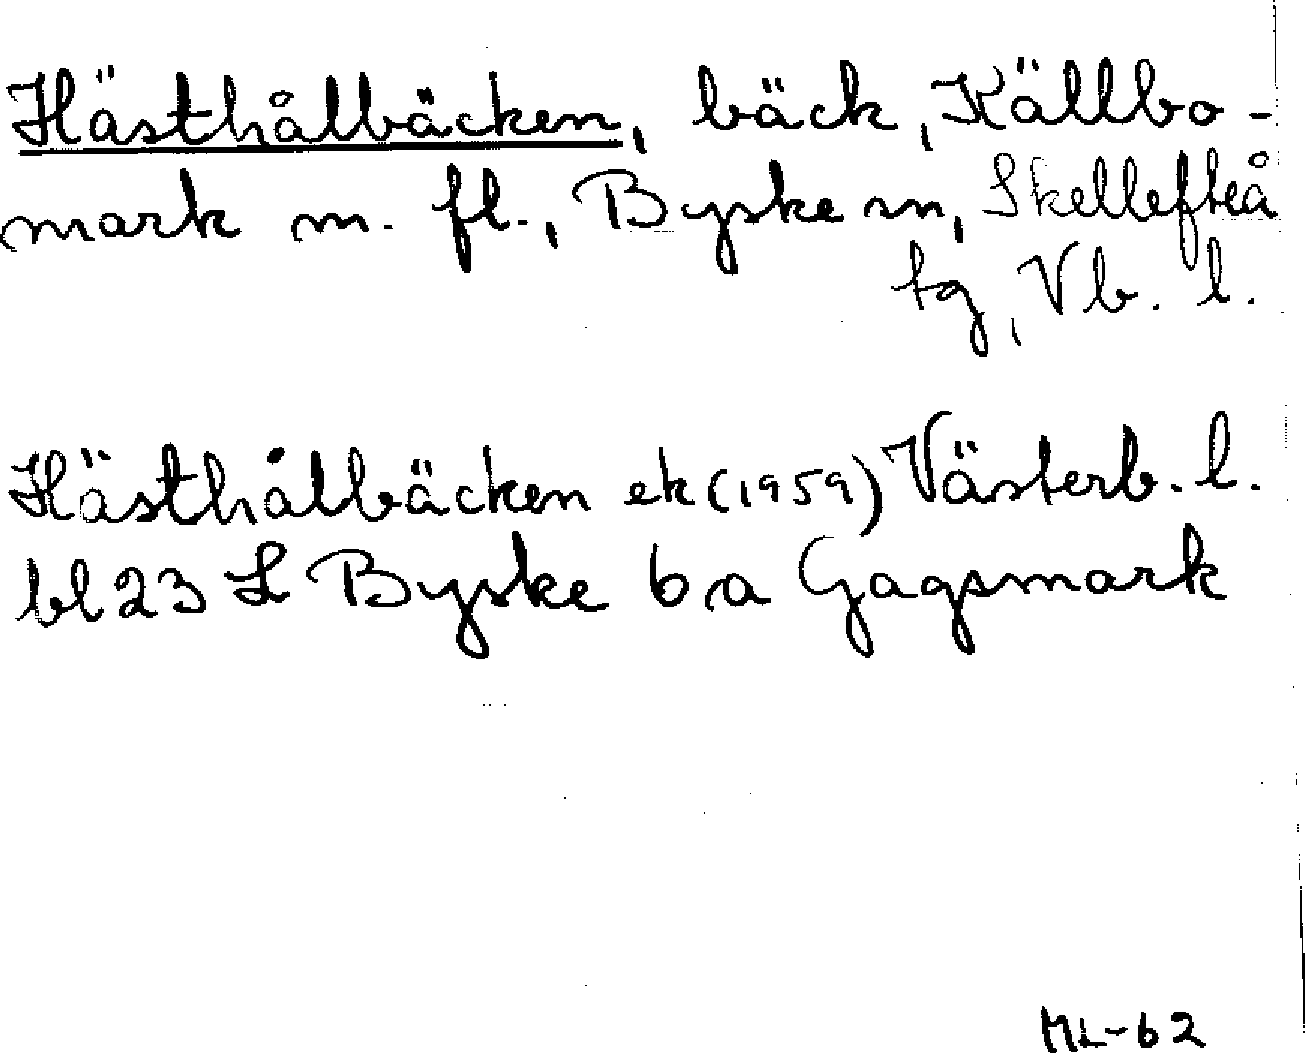 Hästhålbäcken, bäck, Källbo-
mark m. fl., Byske sn, Skellefteå
tg, Vb. l.
Hästhålbäcken ek (1959) Västerb. l.
bl 23 L Byske 6 a Gagsmark
ML-62